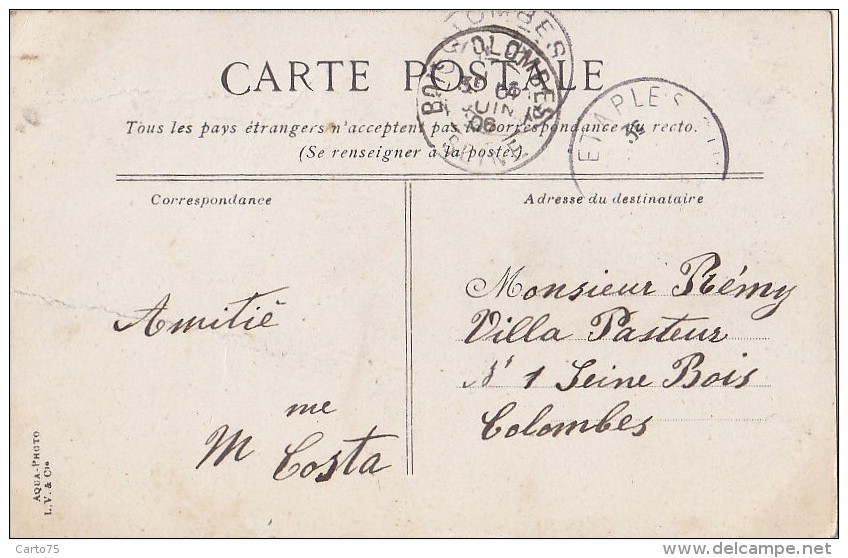 CARTE POSTALE
Tous les pays étrangers n'acceptent pas la correspondance au recto.
(Se renseigner à la poste).
COLOMBES
JUIN
06
ETAPLES
Correspondance
Adresse du destinataire
Amitié
Mme
Costa
Monsieur Rémy
Villa Pasteur
N° 1 Seine Bois
Colombes
AQUA-PHOTO
L. V. & Cie
Carto75
www.delcampe.net